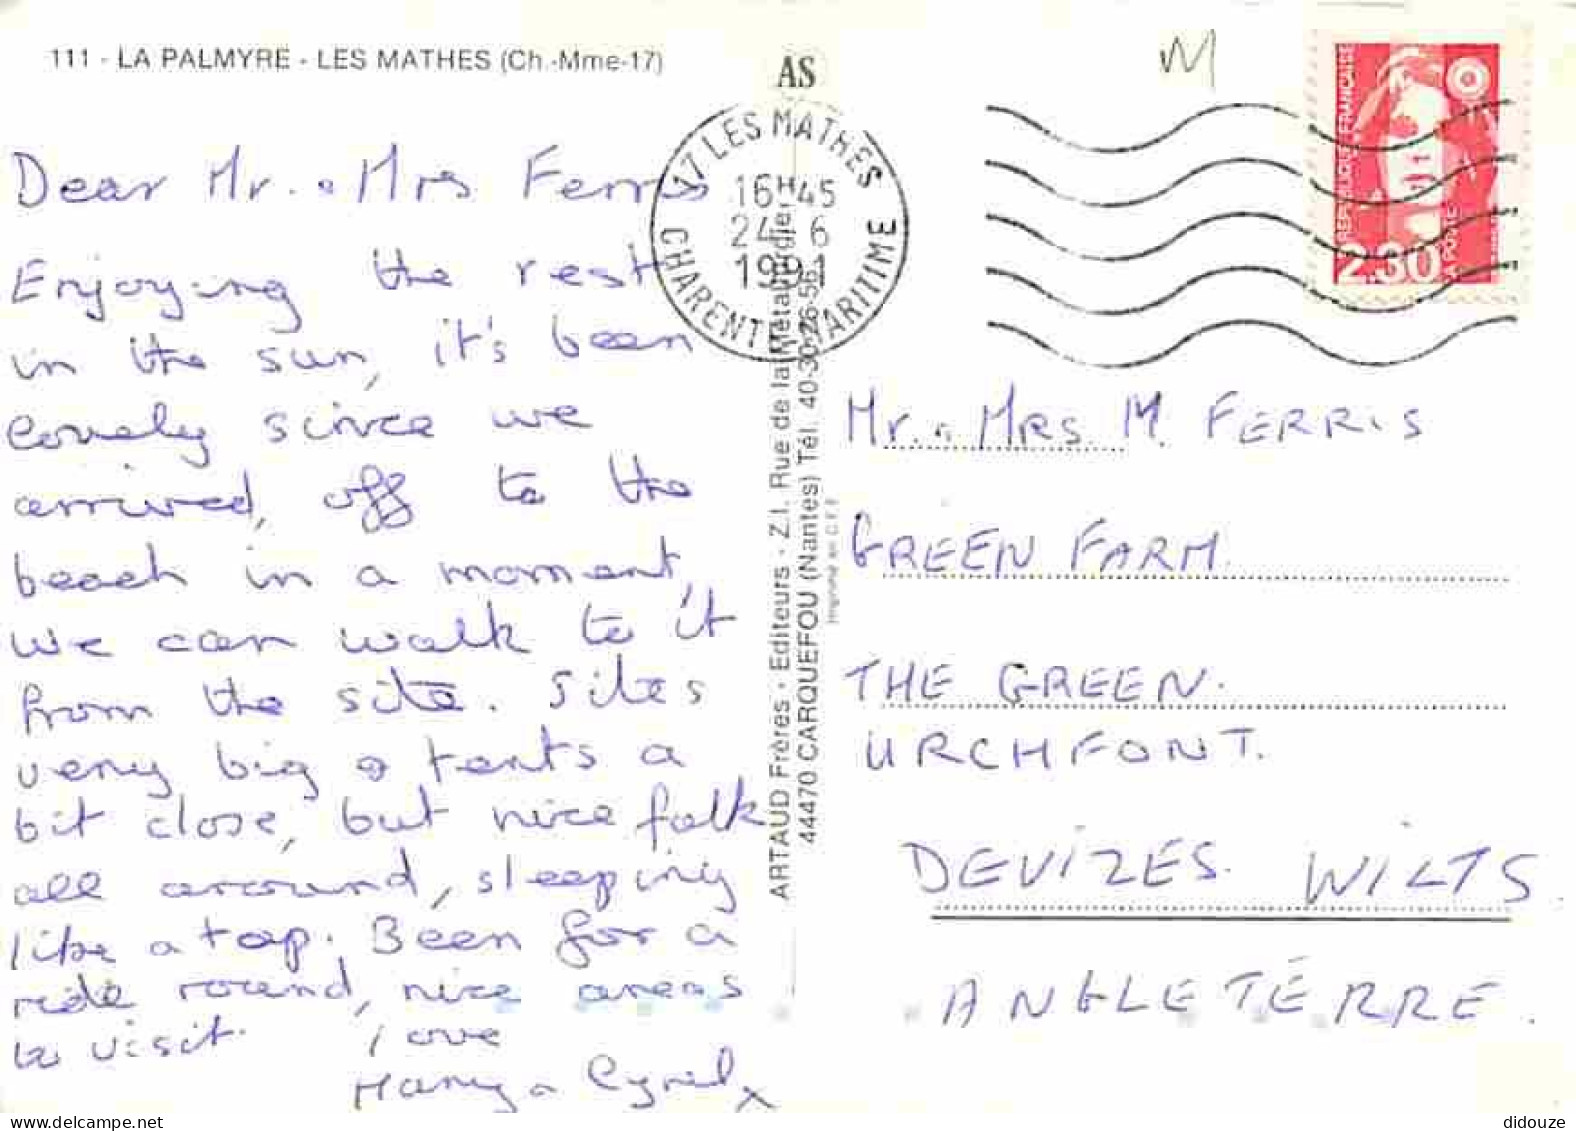 111 - LA PALMYRE - LES MATHES (Ch.-Mme-17)
AS
M
Dear Mr. & Mrs Ferris
Enjoying the rest
in the sun, it's been
lovely since we
arrived, off to the
beach in a moment,
we can walk to it
from the site. Sites
very big & tents a
bit close, but nice folk
all around, sleeping
like a top. Been for a
ride round, nice areas
to visit. Love
& Cyril x
17 LES MATHES
16H45
24 6
1991
CHARENTE MARITIME
REPUBLIQUE FRANCAISE
2.30
LA POSTE
ARTAUD Frères - Editeurs - Z.I. Rue de la Métallurgie
44470 CARQUEFOU (Nantes) Tél. 40-30-26-56
Imprimé en C.E.E
Mr. & Mrs. M. FERRIS
GREEN FARM.
THE GREEN.
URCHFONT.
DEVIZES. WILTS.
ANGLETÉRRE.
didouze